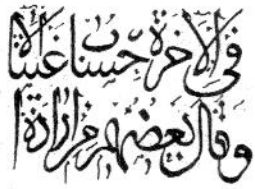 في الآخرة حسنا غنينا
وقال بعضهم من اراد ا